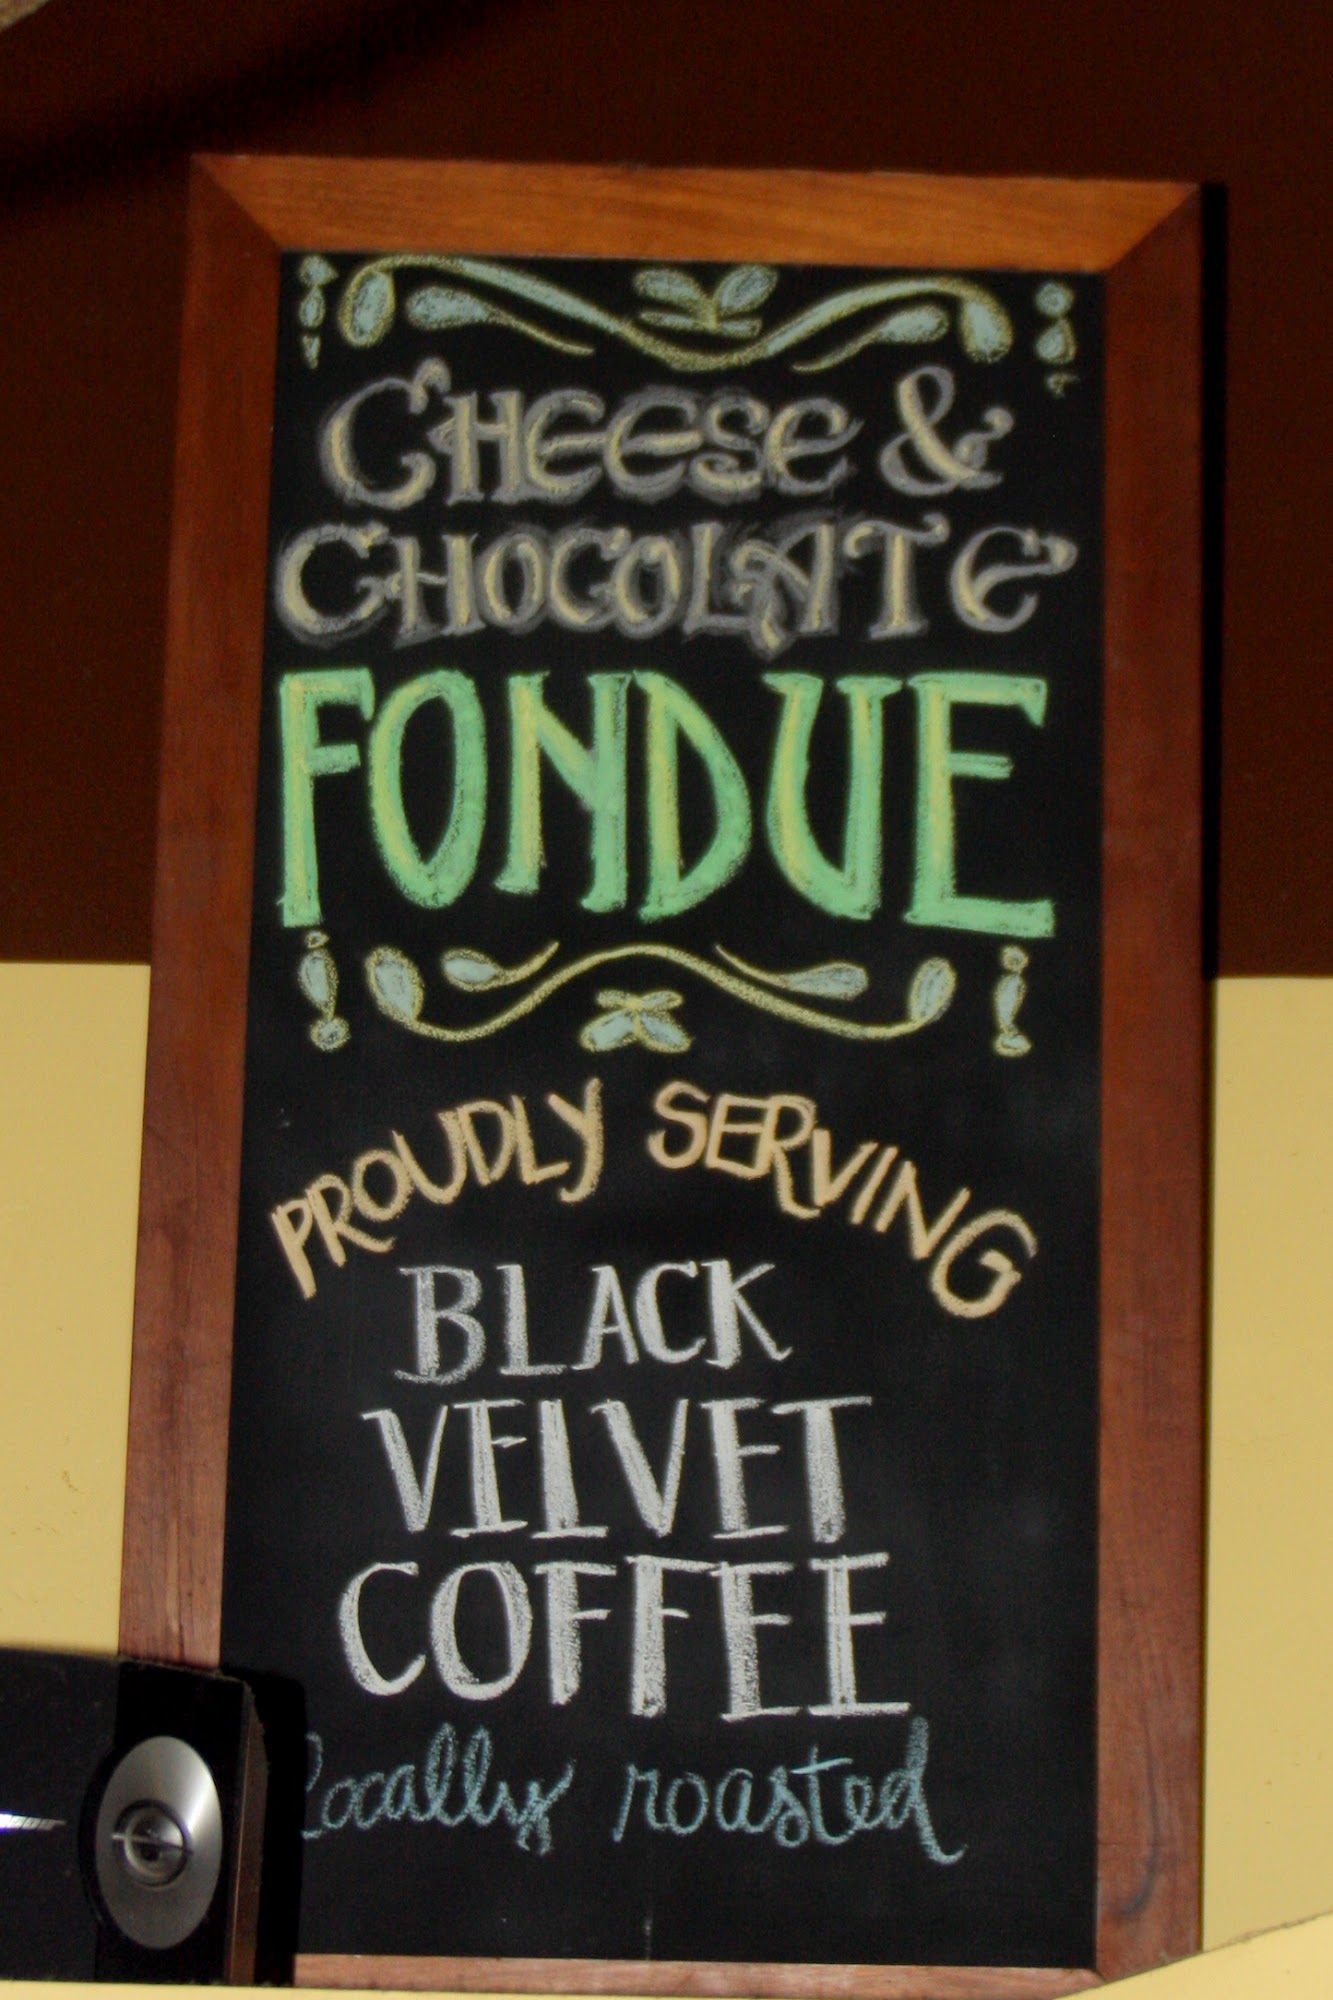 CHEESE &
CHOCOLATE
FONDUE
PROUDLY SERVING
BLACK
VELVET
COFFEE
locally roasted